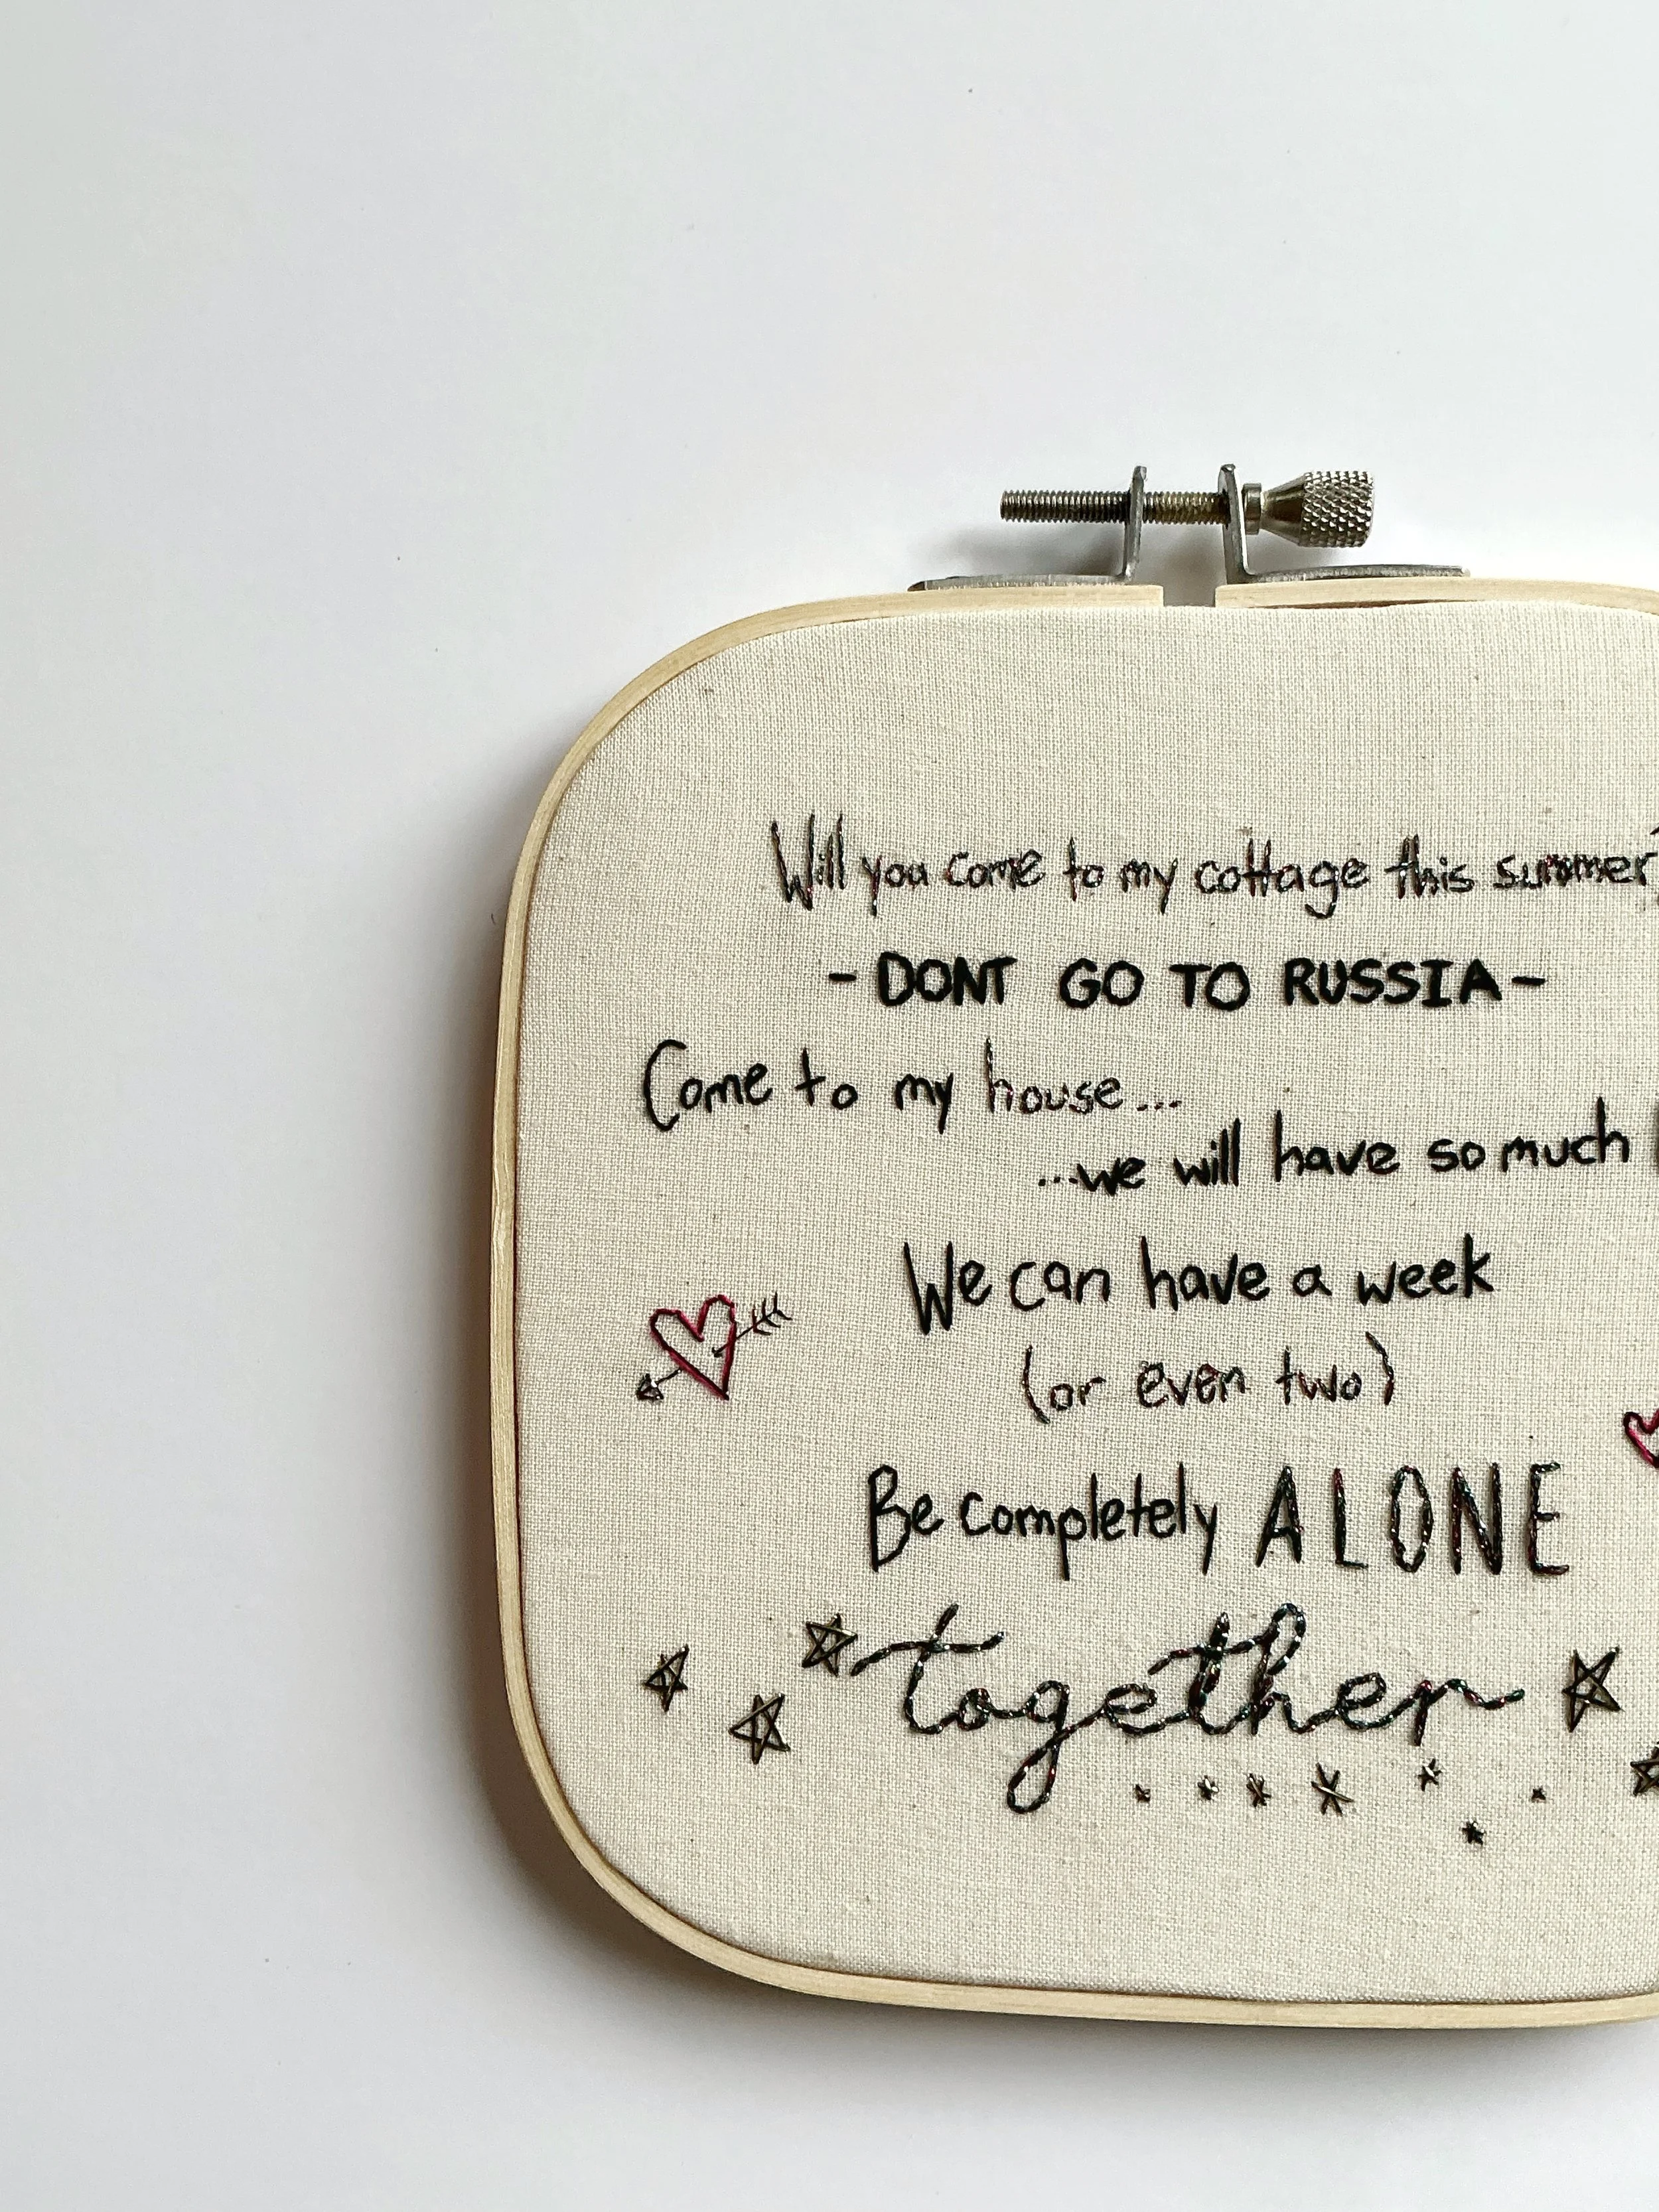 Will you come to my cottage this summer?
- DONT GO TO RUSSIA -
Come to my house...
...we will have so much
We can have a week
(or even two)
Be completely ALONE
together